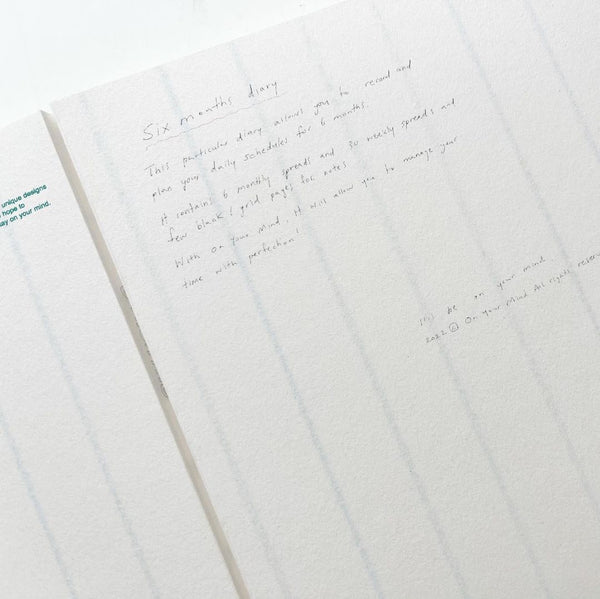 unique designs
hope to
on your mind.
Six months diary
This particular diary allows you to record and
plan your daily schedules for 6 months.
It contains 6 monthly spreads and 30 weekly spreads and
few blank / grid pages for notes
With On Your Mind, It will allow you to manage your
time with perfection!
be on your mind
2022 © On Your Mind All rights reserv